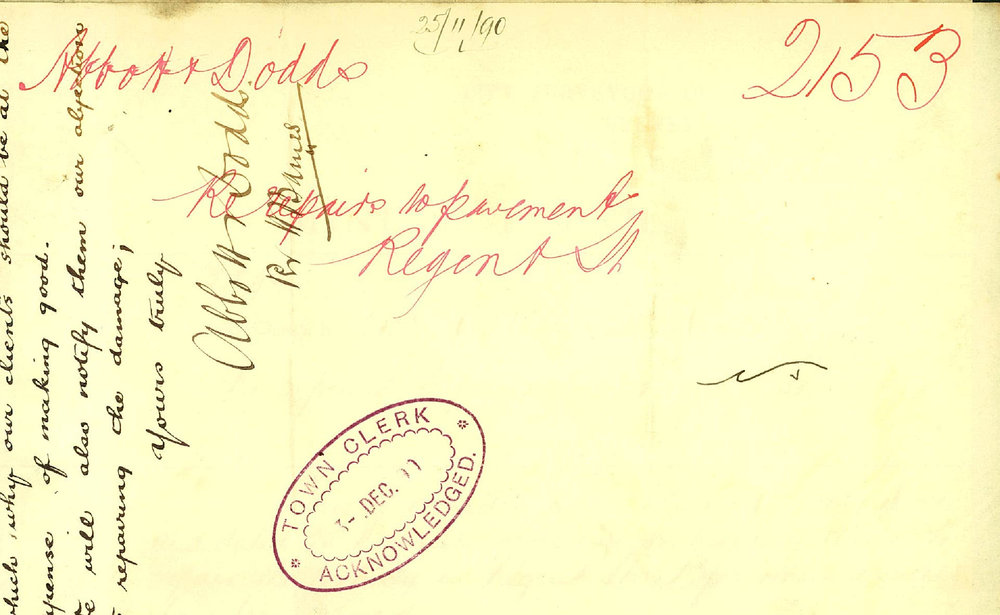 25/11/90
Abbott & Dodds
2153
Re repairs to pavement
Regent St
which why our clients should be at the
of making good.
will also notify them our objection
repairing the damage;
Yours truly
Abbott & Dodds
Pr
TOWN CLERK
DEC.
ACKNOWLEDGED.